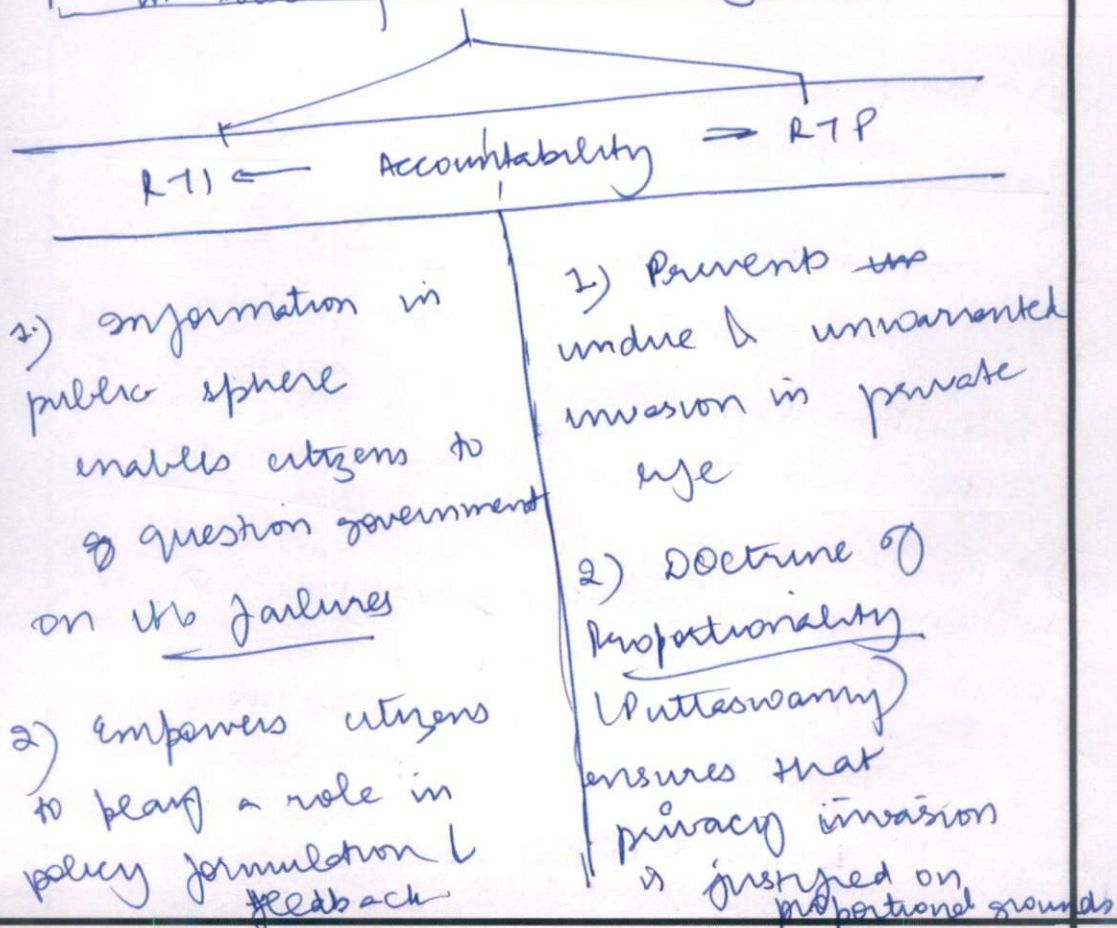 RTI ← Accountability ⇒ RTP
1.) Information in
public sphere
enables citizens to
question government
on its failures
2) Empowers citizens
to play a role in
policy formulation &
feedback
1) Prevents
undue & unwarranted
invasion in private
life
2) Doctrine of
Proportionality
(Puttaswamy)
ensures that
privacy invasion
is justified on
proportional grounds